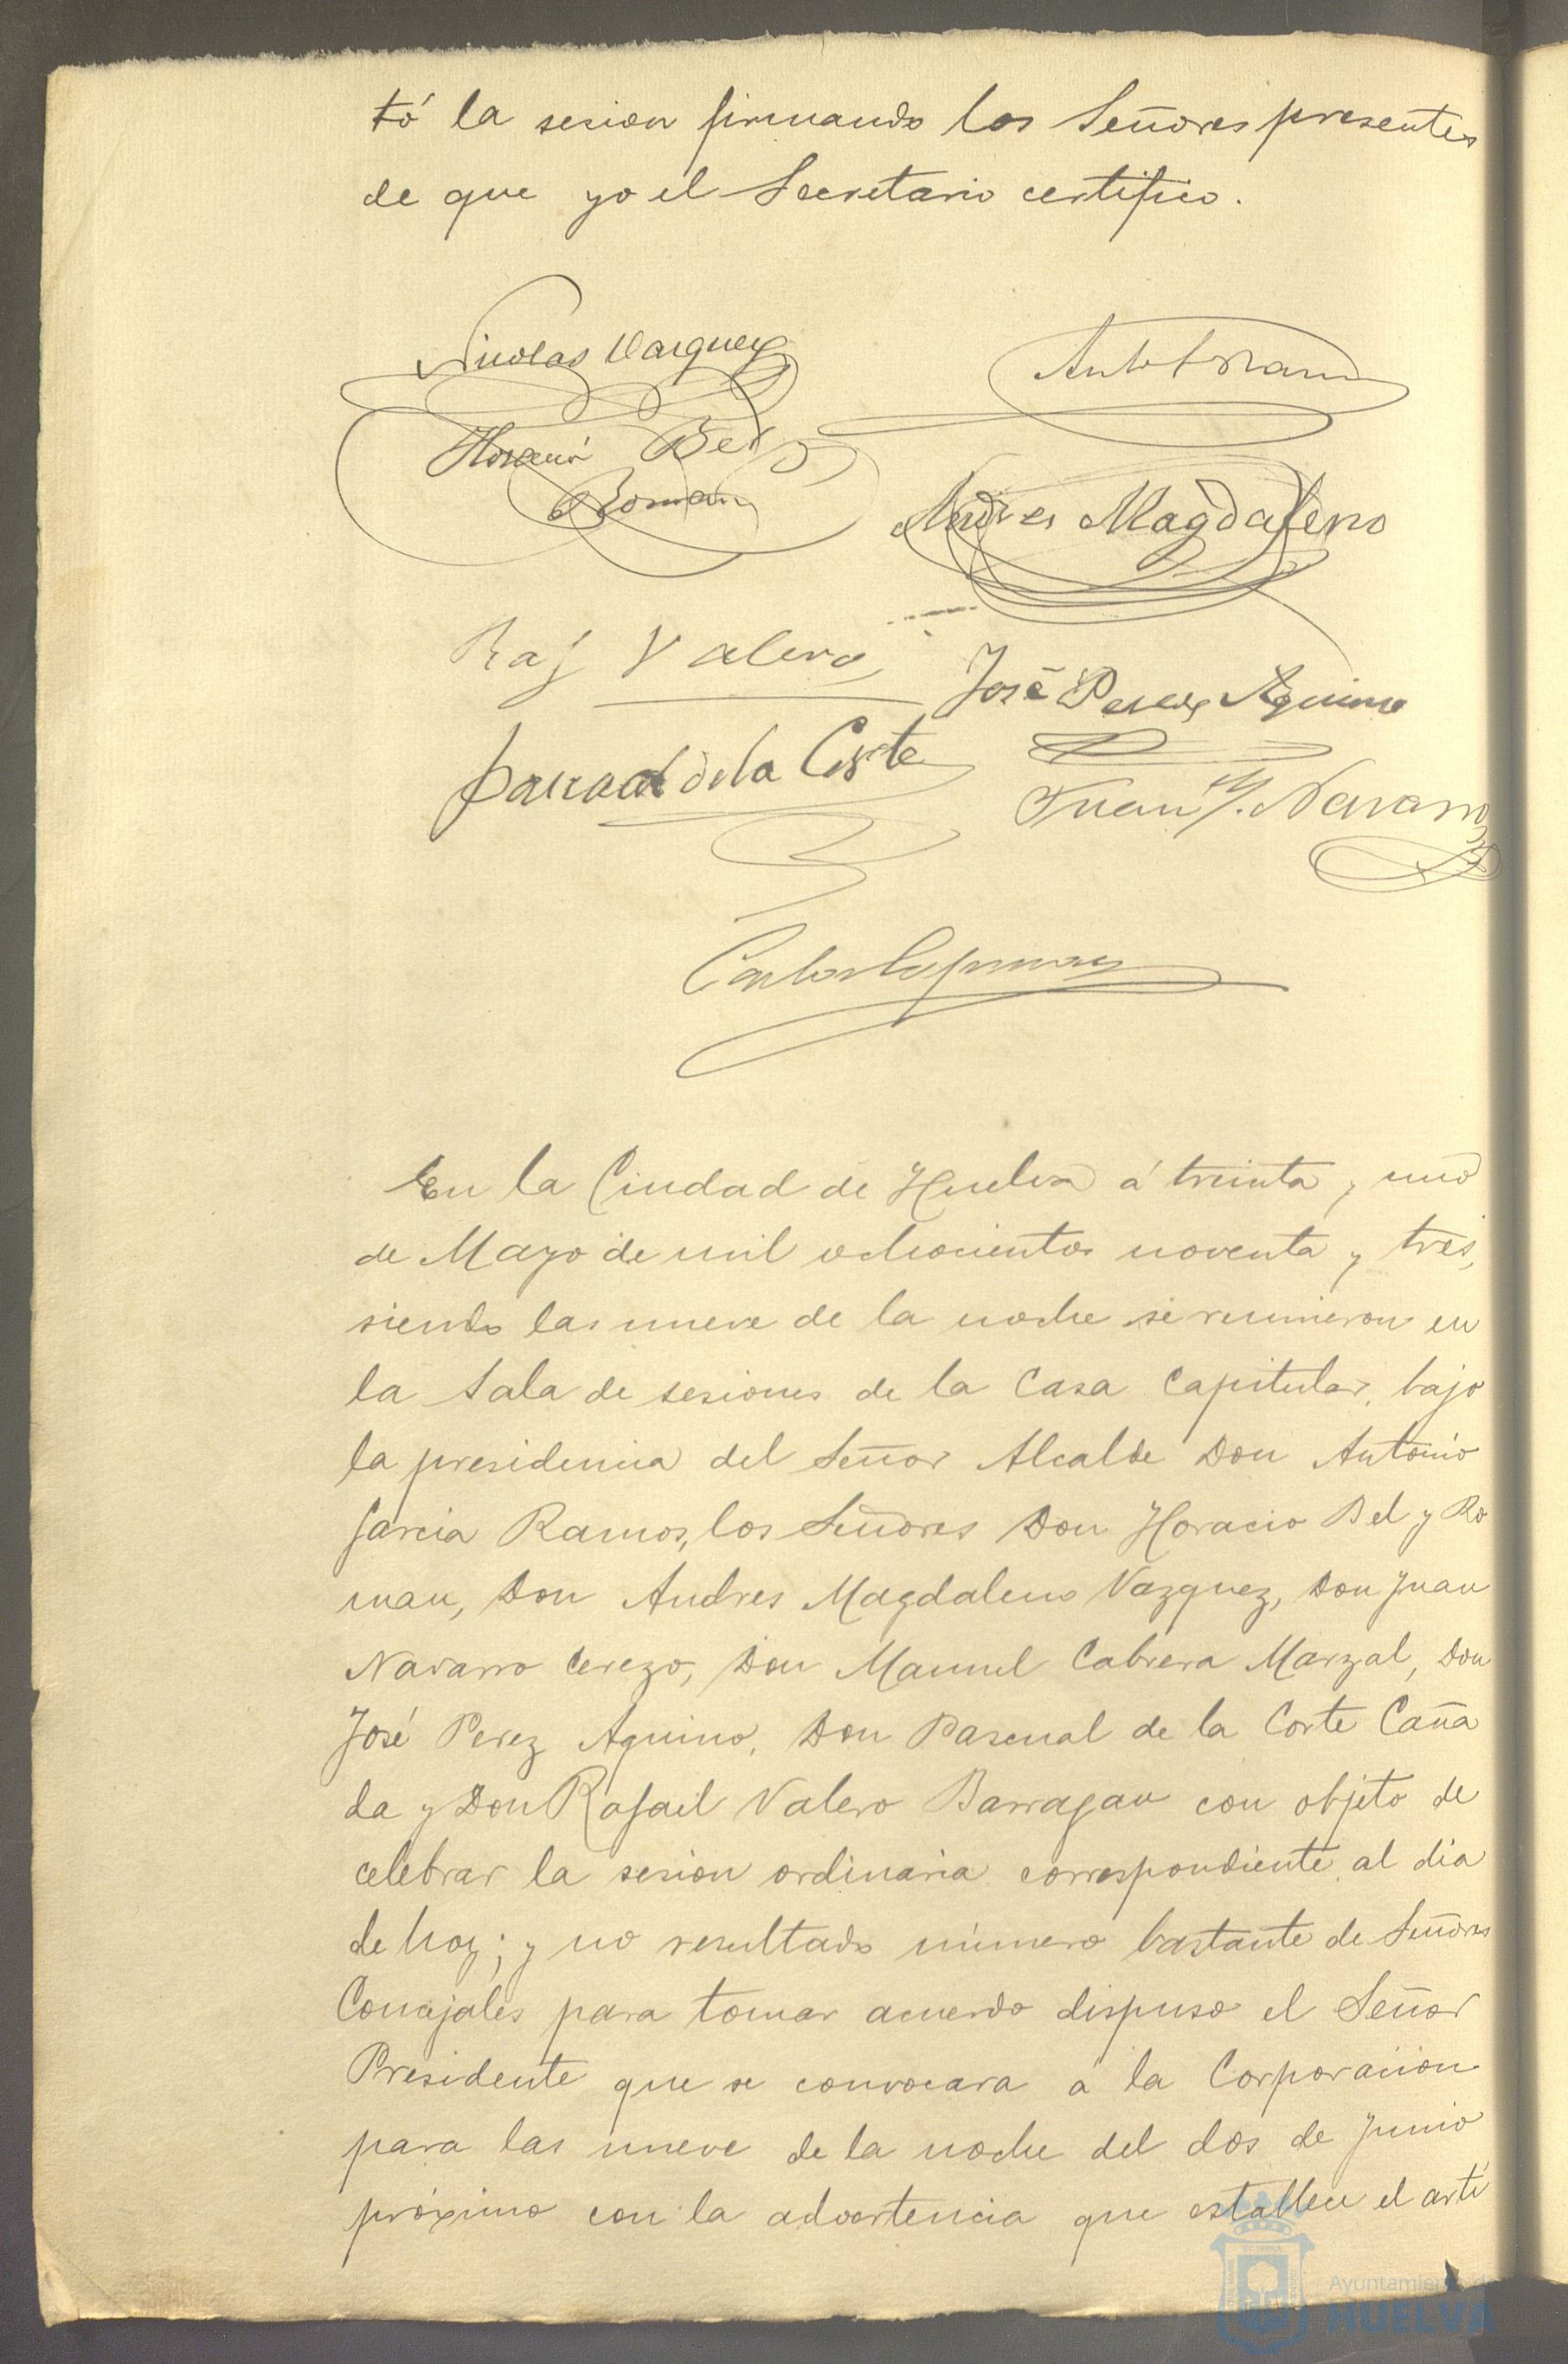 tó la sesion firmando los Señores presentes
de que yo el Secretario certifico.
Nicolas Vazquez
Horacio Bel
Roman
Andres Magdaleno
Raf Valero
José Perez Aquino
Pascual de la Corte
Juan Navarro
En la Ciudad de Huelva á treinta y uno
de Mayo de mil ochocientos noventa y tres,
siendo las nueve de la noche se reunieron en
la Sala de sesiones de la Casa Capitular, bajo
la presidencia del Señor Alcalde Don Antonio
Garcia Ramos, los Señores Don Horacio Bel y Ro
man, Don Andres Magdaleno Vazquez, Don Juan
Navarro Cerezo, Don Manuel Cabrera Marzal, Don
José Perez Aquino, Don Pascual de la Corte Caña
da y Don Rafael Valero Barragan con objeto de
celebrar la sesion ordinaria correspondiente al dia
de hoy; y no resultado número bastante de Señores
Concejales para tomar acuerdo dispuso el Señor
Presidente que se convocara á la Corporacion
para las nueve de la noche del dos de Junio
próximo con la advertencia que establece el artí
Ayuntamiento de
HUELVA